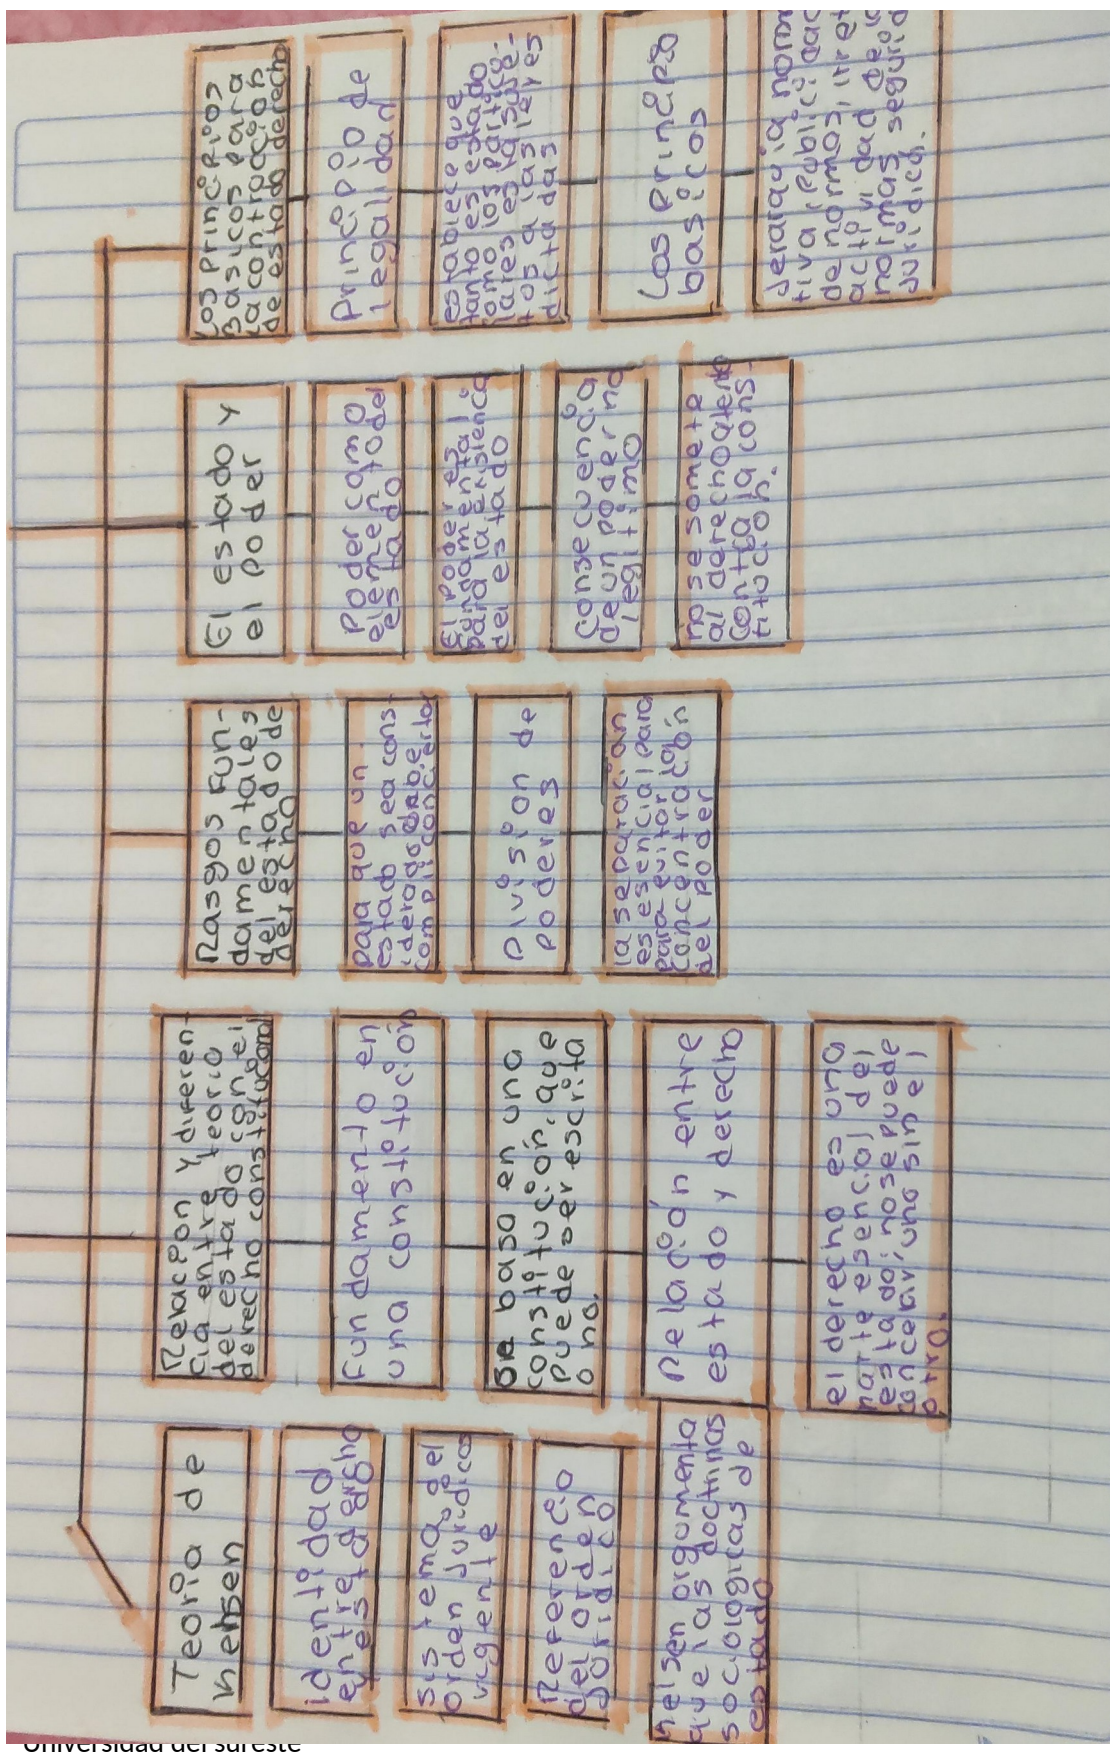 Teoría de
Kelsen
identidad
entre
estado
sistema del
orden Jurídico
vigente
Referencia
del orden
Jurídico
Kelsen argumenta
que las doctrinas
sociologicas de
estado
Relación y diferen-
cia entre teoria
del estado con el
derecho constitucional
Fundamento en
una constitución
Se basa en una
constitución, que
puede ser escrita
o no.
Relación entre
estado y derecho
el derecho es una
parte esencial del
estado; no se puede
concebir, uno sin el
otro.
Rasgos fun-
damentales
del estado de
derecho
para que un
estado sea cons-
iderado debe
complir con ciertos
División de
poderes
la separación
es esencial para
para evitar la
concentración
del poder
El estado y
el poder
Poder como
elemento del
estado
El poder es
fundamental
para la existencia
del estado
Consecuencia
de un poder no
legitimo
no se somete
al derecho atento
contra la cons-
titución.
Los principios
Basicos para
la contración
de estado derecho
Principio de
Legalidad
establece que
tanto es estado
como los partícu-
lares es va suje-
tos a las leyes
dictadas
Los principio
basicos
Jeraraquia norma
tiva, publicidad
de normas, irret
actividad de
normas segurid
Juridica.
Universidad del sureste